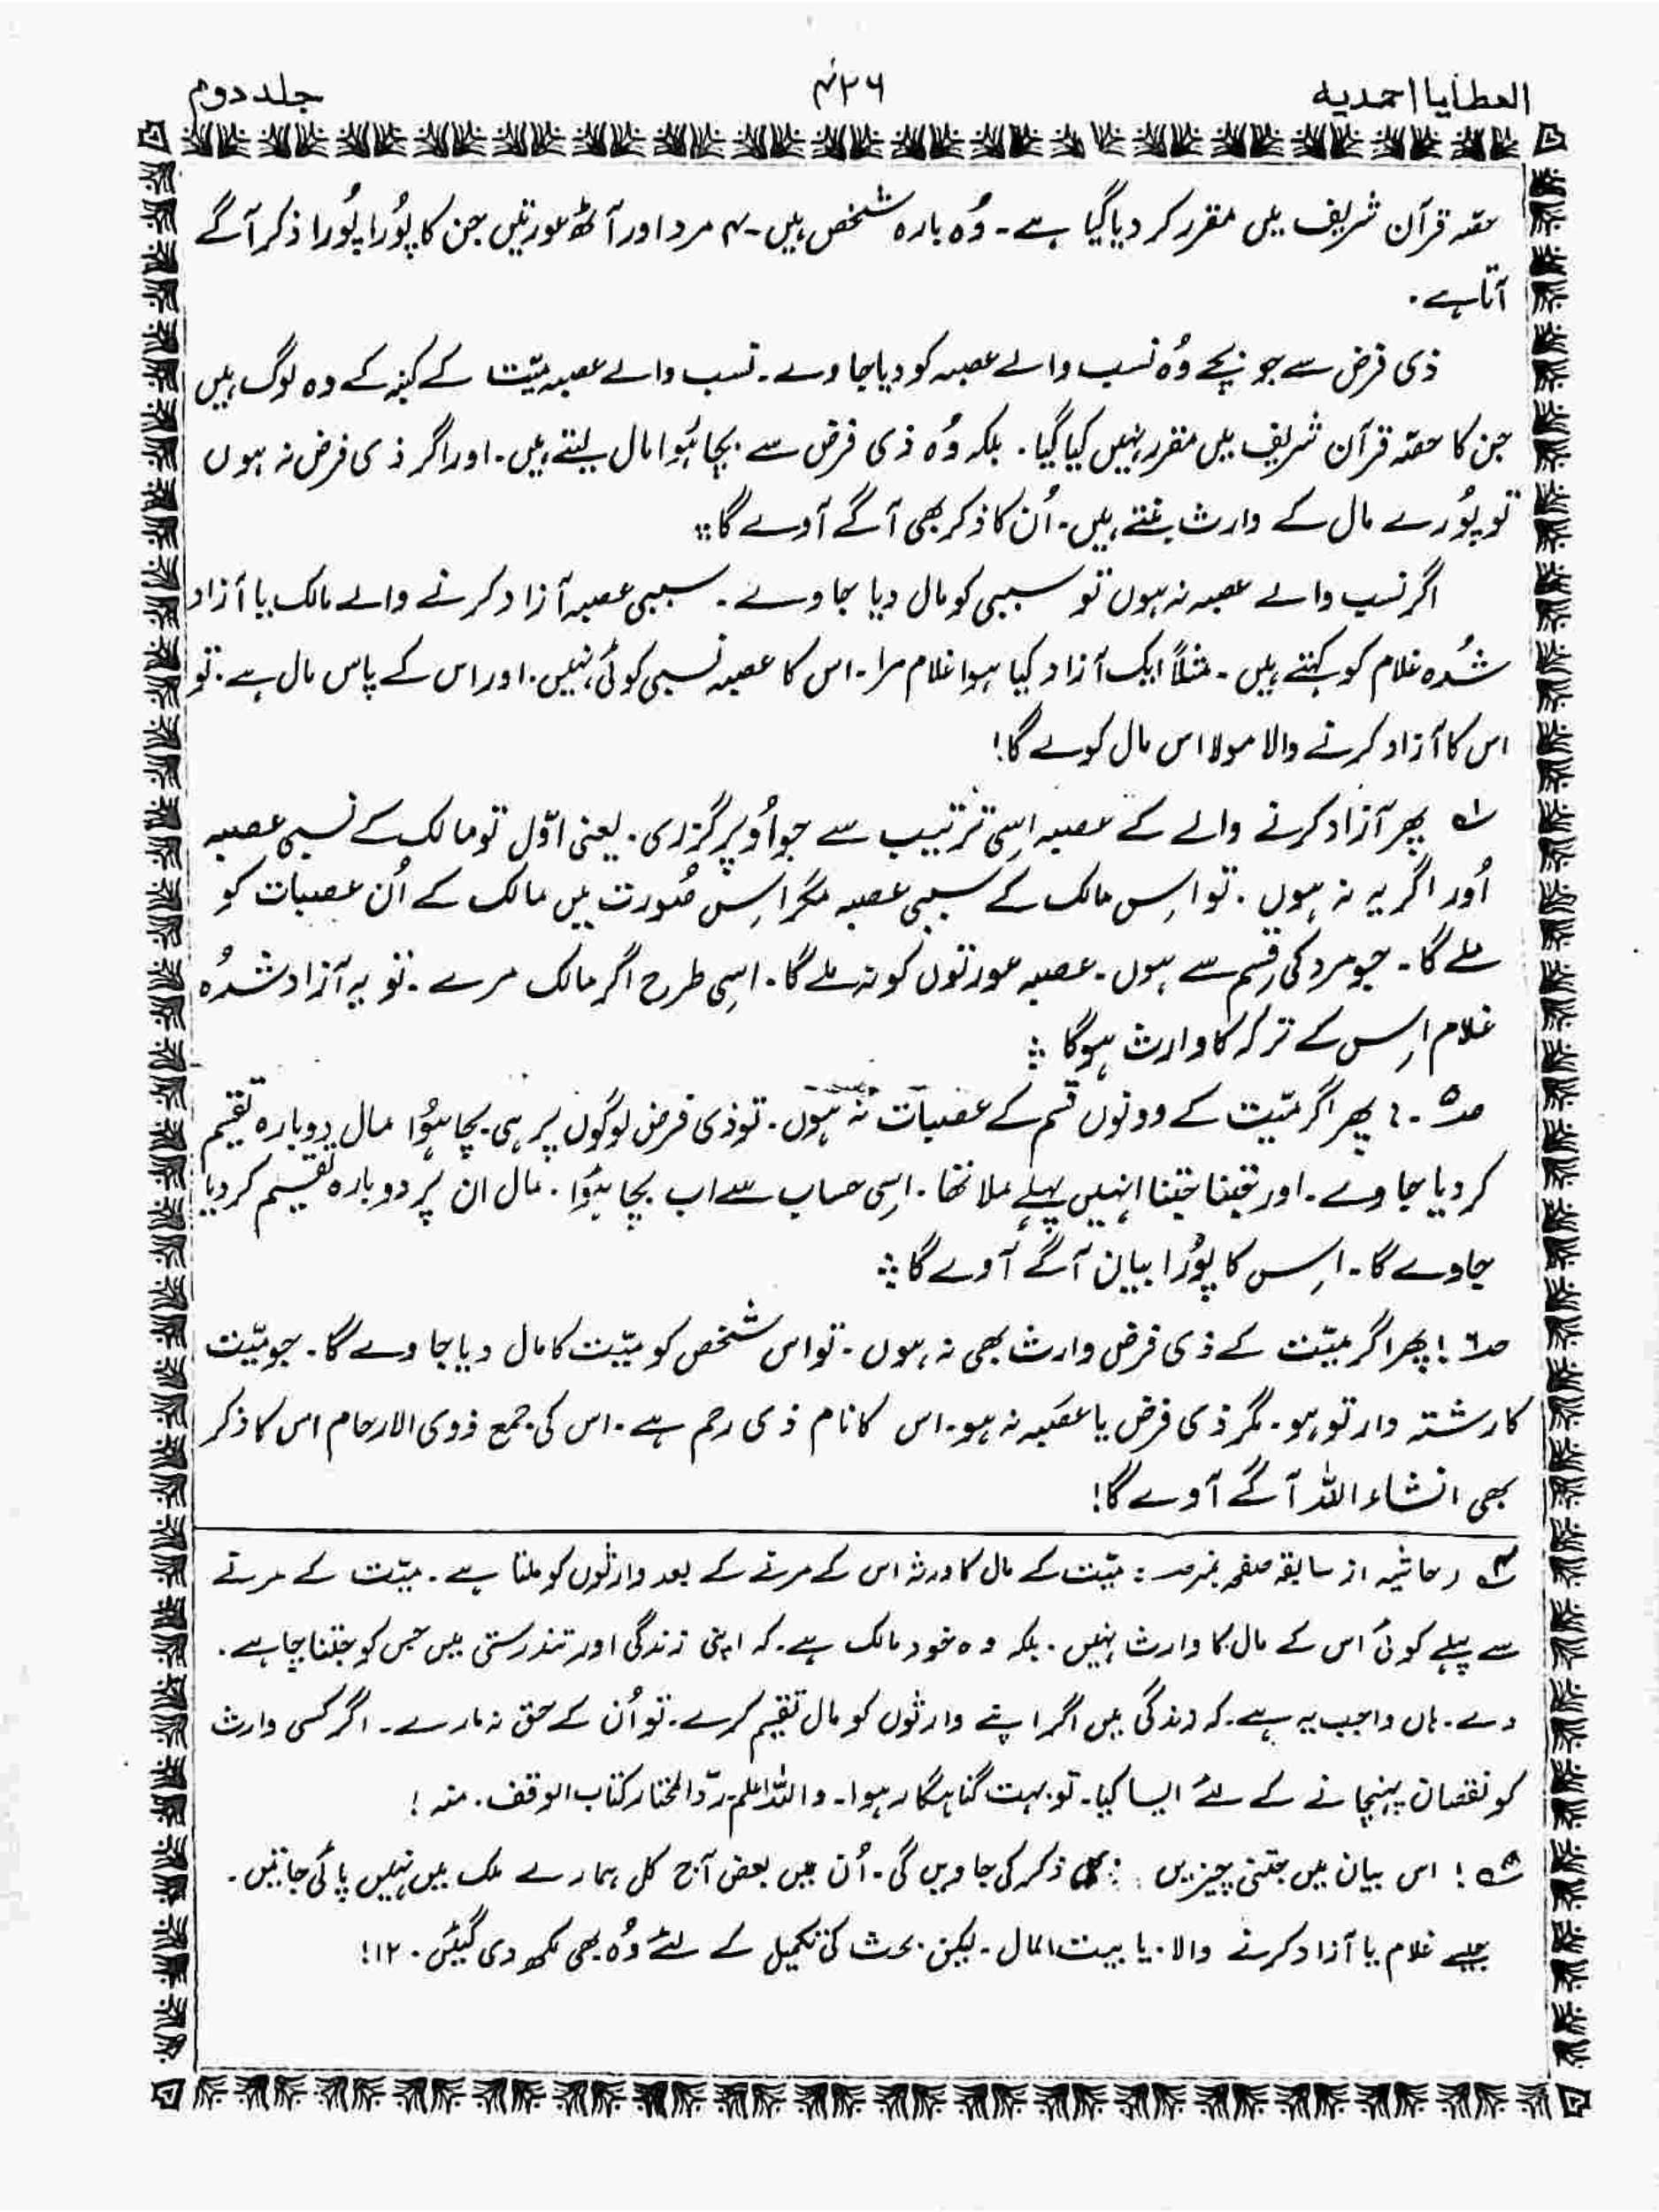 العطایا احمدیہ
۴۲۶
جلد دوم
حصّہ قرآن شریف میں مقرر کر دیا گیا ہے۔ وُہ بارہ شخص ہیں۔ ۴ مرد اور آٹھ عورتیں جن کا پُورا پُورا ذکر آگے
آتا ہے۔
ذی فرض سے جو بچے وُہ نسب والے عصبہ کو دیا جاوے۔ نسب والے عصبہ میّت کے کنبہ کے وہ لوگ ہیں
جن کا حصّہ قرآن شریف میں مقرر نہیں کیا گیا۔ بلکہ وُہ ذی فرض سے بچا ہُوا مال لیتے ہیں۔ اور اگر ذی فرض نہ ہوں
تو پُورے مال کے وارث بنتے ہیں۔ اُن کا ذکر بھی آگے آوے گا؛
اگر نسب والے عصبہ نہ ہوں تو سببی کو مال دیا جاوے۔ سببی عصبہ آزاد کرنے والے مالک یا آزاد
شُدہ غلام کو کہتے ہیں۔ مثلاً ایک آزاد کیا ہوا غلام مرا۔ اس کا عصبہ نسبی کوئی نہیں۔ اور اس کے پاس مال ہے۔ تو
اس کا آزاد کرنے والا مولا اس مال کو لے گا!
پھر آزاد کرنے والے کے عصبہ اِسی ترتیب سے جو اُوپر گزری۔ یعنی اوّل تو مالک کے نسبی عصبہ
اَور اگر یہ نہ ہوں۔ تو اِس مالک کے سببی عصبہ مگر اِس صُورت میں مالک کے اُن عصبات کو
ملے گا۔ جو مرد کی قِسم سے ہوں۔ عصبہ عورتوں کو نہ ملے گا۔ اسی طرح اگر مالک مرے۔ تو یہ آزاد شُدہ
غلام اِس کے ترکہ کا وارث ہوگا ؛
ص۵۔ پھر اگر میّت کے دونوں قسم کے عصبات نہ ہوں۔ تو ذی فرض لوگوں پر ہی بچا ہُوا مال دوبارہ تقسیم
کر دیا جاوے۔ اور جتنا جتنا انہیں پہلے ملا تھا۔ اِسی حساب سے اب بچا ہُوا۔ مال ان پر دوبارہ تقسیم کر دیا
جاوے گا۔ اِس کا پُورا بیان آگے آوے گا ؛
ص۶! پھر اگر میّت کے ذی فرض وارث بھی نہ ہوں۔ تو اس شخص کو میّت کا مال دیا جاوے گا۔ جو میّت
کا رشتہ دار تو ہو۔ مگر ذی فرض یا عصَبہ نہ ہو۔ اس کا نام ذی رحم ہے۔ اس کی جمع ذوی الارحام اس کا ذکر
بھی انشاء اللہ آگے آوے گا!
حاشیہ از سابقہ صفحہ نمبر : میّت کے مال کا ورثہ اس کے مرنے کے بعد وارثوں کو ملتا ہے۔ میّت کے مرنے
سے پہلے کوئی اس کے مال کا وارث نہیں۔ بلکہ وہ خود مالک ہے۔ کہ اپنی زندگی اور تندرستی میں جس کو جتنا چاہے۔
دے۔ ہاں واجب یہ ہے۔ کہ زندگی میں اگر اپنے وارثوں کو مال تقیم کرے۔ تو اُن کے حق نہ مارے۔ اگر کسی وارث
کو نقصان پہنچانے کے لئے ایسا کیا۔ تو بہت گناہگار ہوا۔ واللہ اعلم۔ ردّ المختار کتاب الوقف۔ منہ !
! اس بیان میں جتنی چیزیں ذکر کی جاویں گی۔ اُن میں بعض آج کل ہمارے ملک میں نہیں پائی جاتیں۔
جیسے غلام یا آزاد کرنے والا۔ یا بیت المال۔ لیکن بحث کی تکمیل کے لئے وُہ بھی لکھ دی گیئں۔ ۱۲!